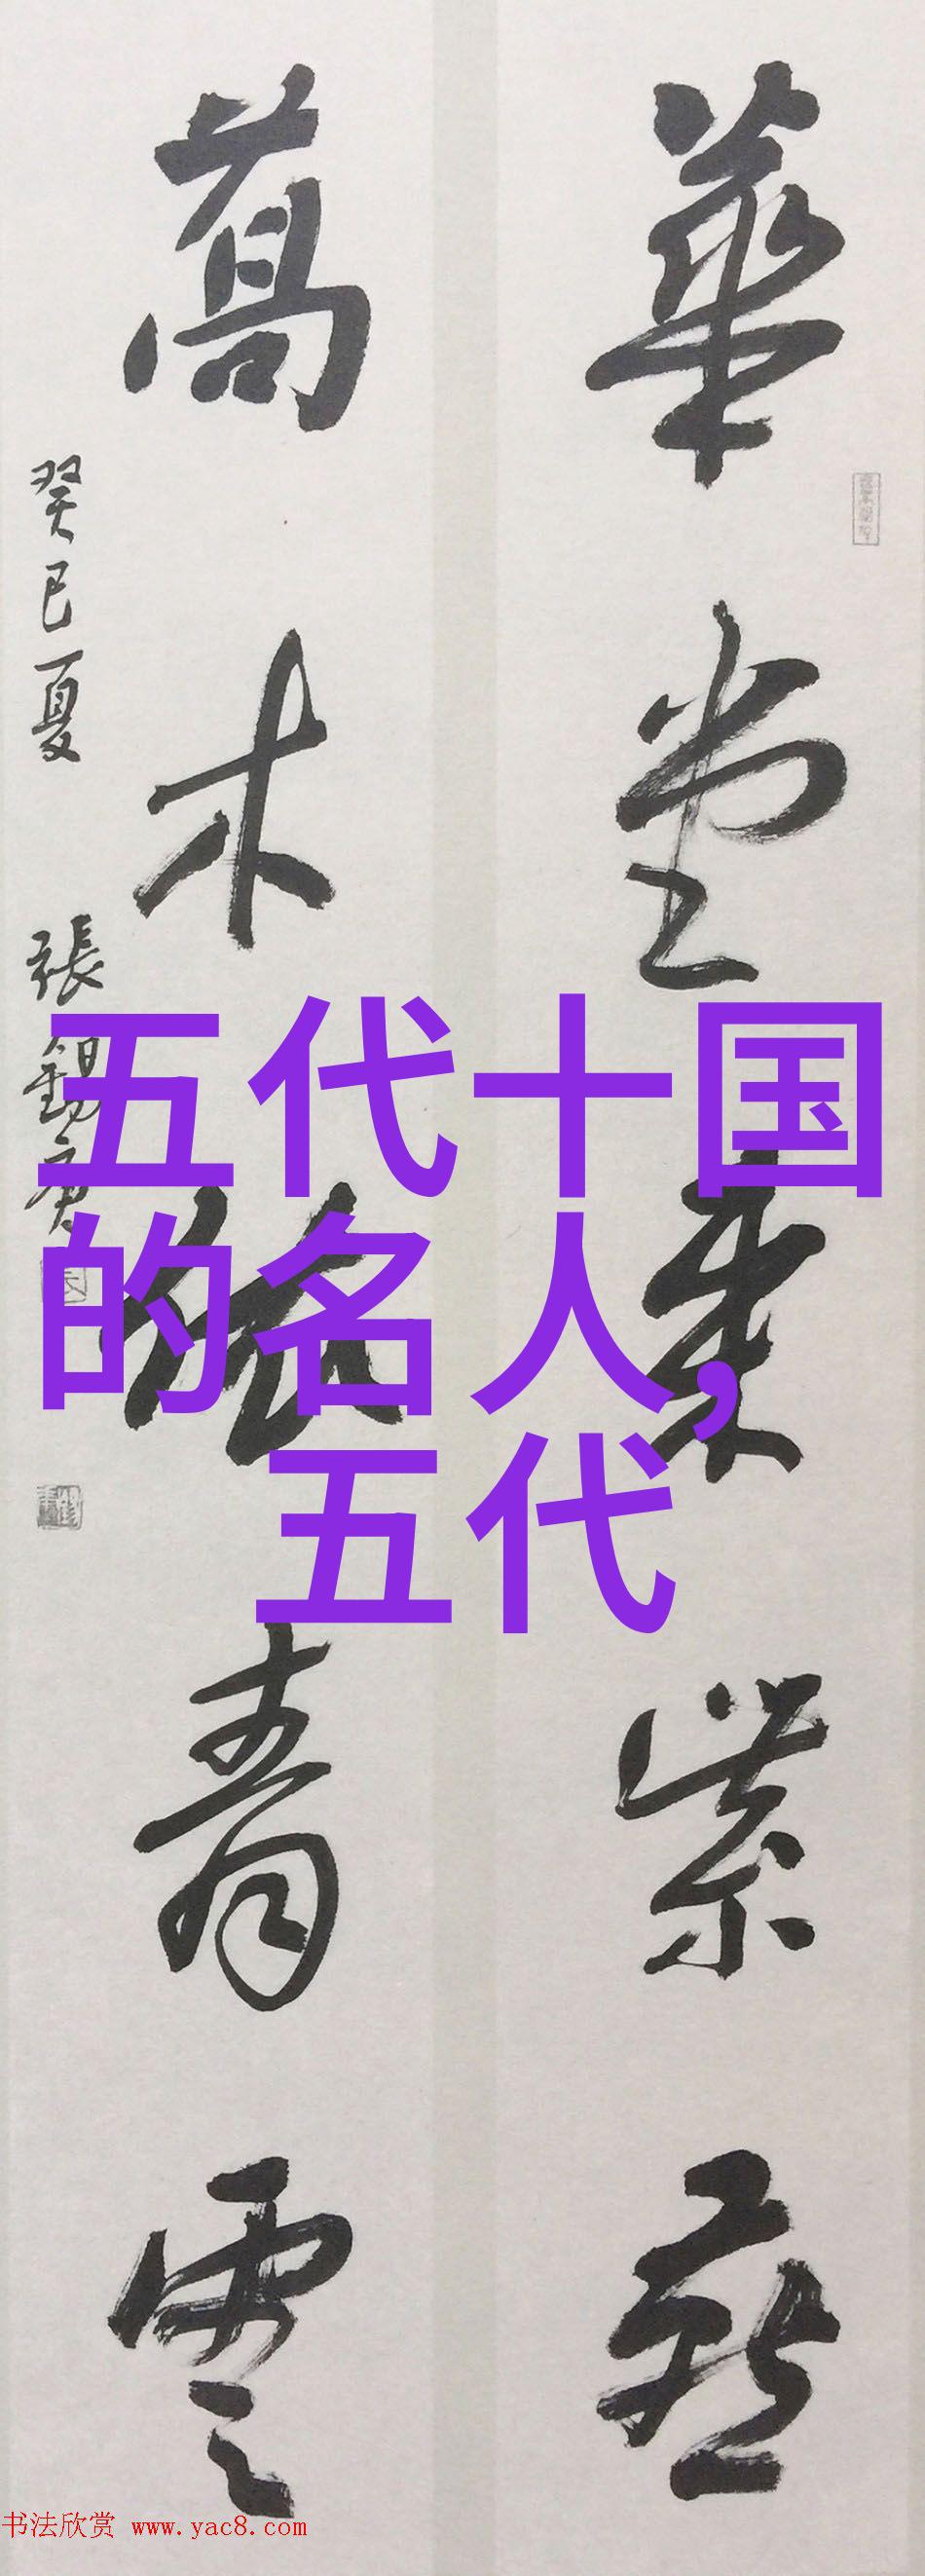 華堂來紫燕
萬木青雲
癸巳夏 張錫庚
五代十国
的名人,
五代
书法欣赏 www.yac8.com